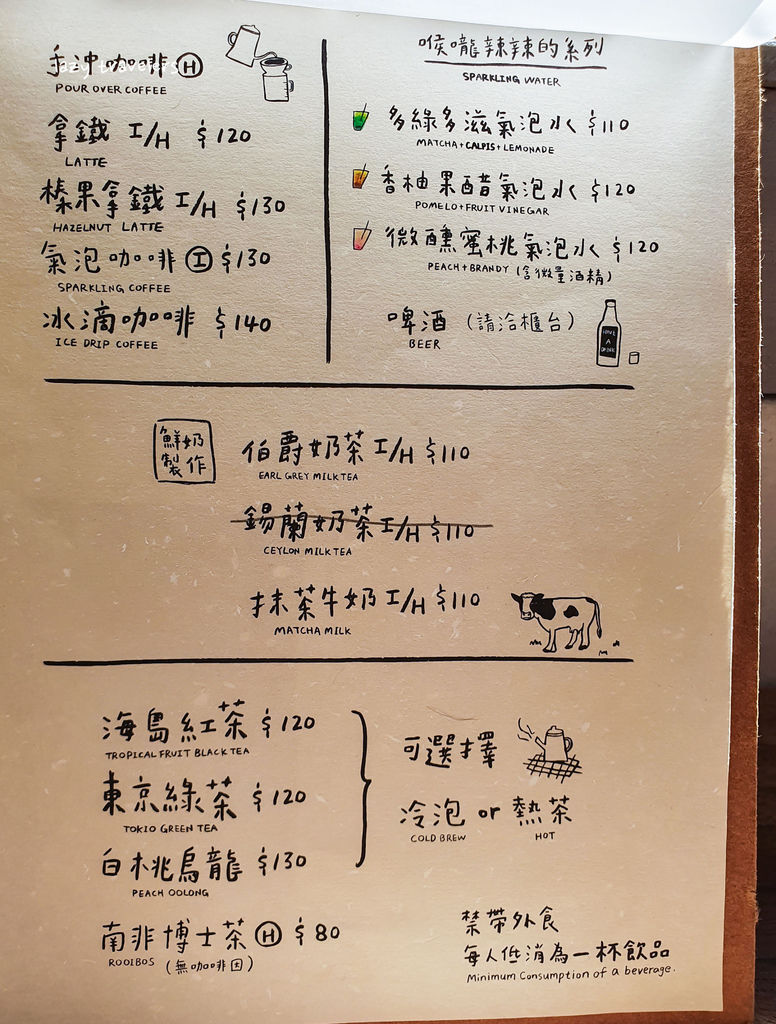 手沖咖啡 Ⓗ
POUR OVER COFFEE
拿鐵 I/H $120
LATTE
榛果拿鐵 I/H $130
HAZELNUT LATTE
氣泡咖啡 Ⓘ $130
SPARKLING COFFEE
冰滴咖啡 $140
ICE DRIP COFFEE
喉嚨辣辣的系列
SPARKLING WATER
多綠多滋氣泡水 $110
MATCHA+CALPIS+LEMONADE
香柚果醋氣泡水 $120
POMELO+FRUIT VINEGAR
微醺蜜桃氣泡水 $120
PEACH+BRANDY (含微量酒精)
啤酒 (請洽櫃台)
BEER
HAVE
A
DRINK
鮮奶
製作
伯爵奶茶 I/H $110
EARL GREY MILK TEA
錫蘭奶茶 I/H $110
CEYLON MILK TEA
抹茶牛奶 I/H $110
MATCHA MILK
海島紅茶 $120
TROPICAL FRUIT BLACK TEA
東京綠茶 $120
TOKIO GREEN TEA
白桃烏龍 $130
PEACH OOLONG
可選擇
冷泡 or 熱茶
COLD BREW HOT
南非博士茶 Ⓗ $80
ROOIBOS (無咖啡因)
禁帶外食
每人低消為一杯飲品
Minimum Consumption of a beverage.